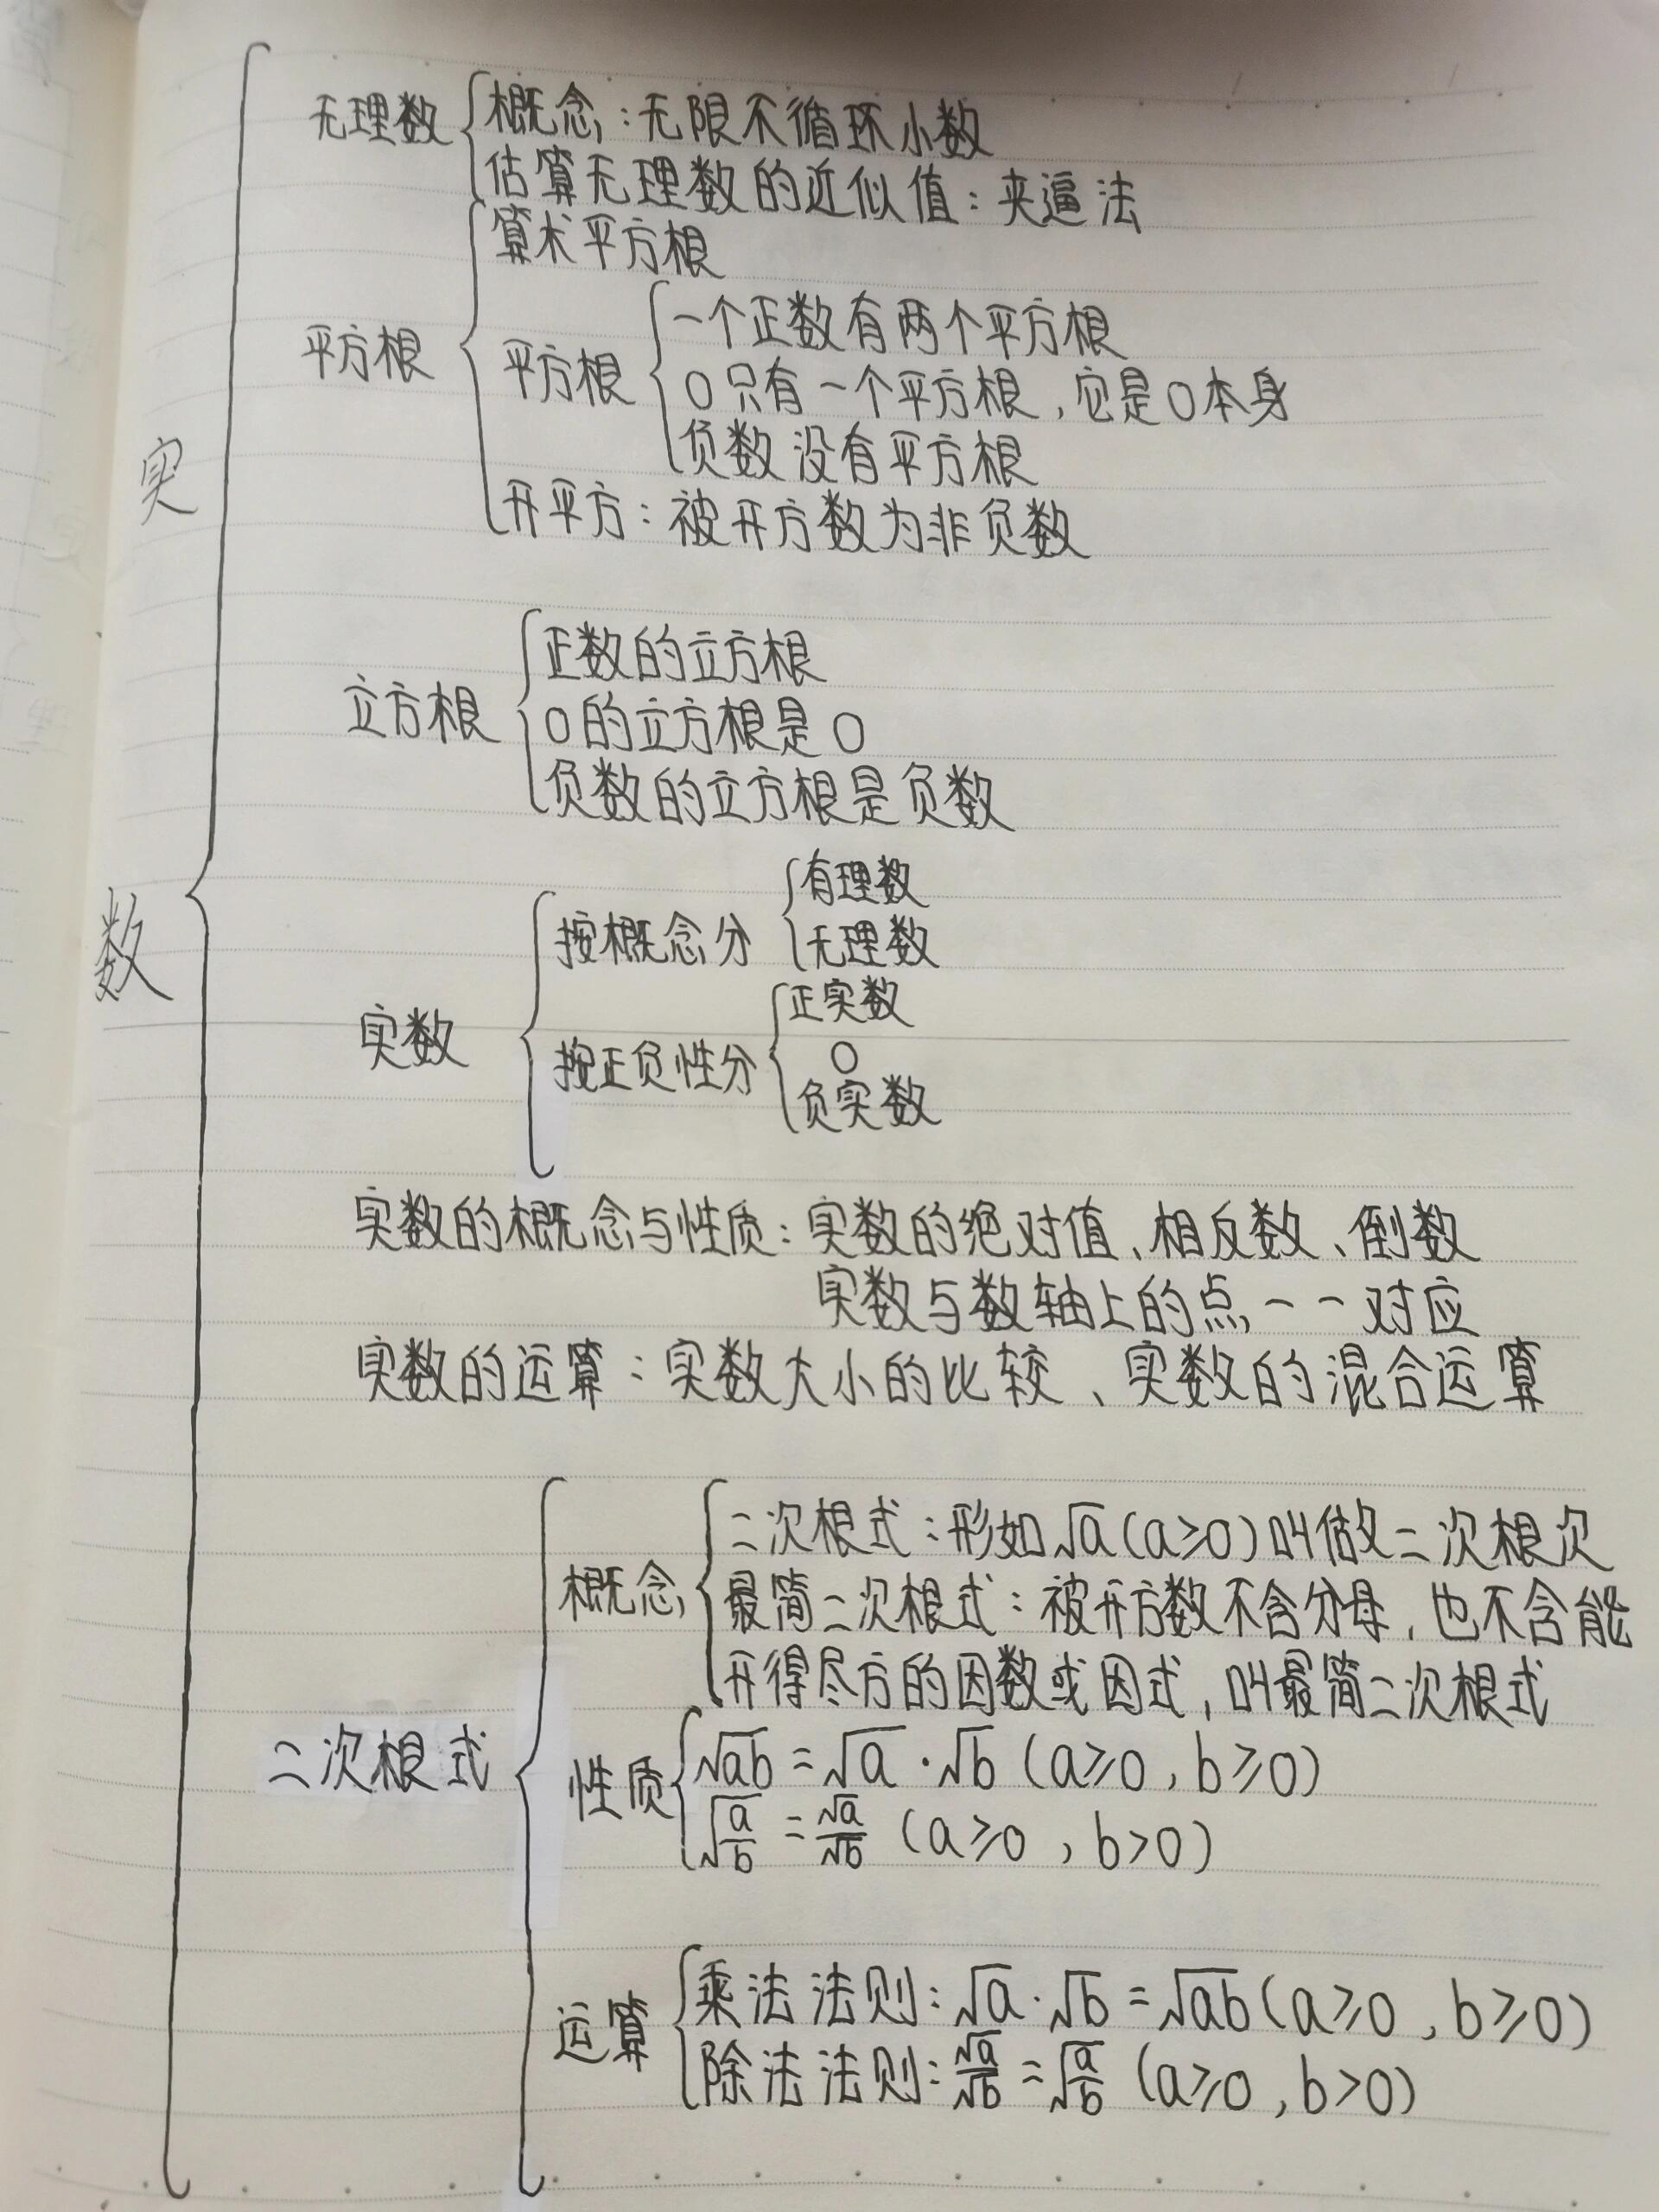 实
数
无理数
概念：无限不循环小数
估算无理数的近似值：夹逼法
平方根
算术平方根
平方根
一个正数有两个平方根
0只有一个平方根，它是0本身
负数没有平方根
开平方：被开方数为非负数
立方根
正数的立方根
0的立方根是0
负数的立方根是负数
实数
按概念分
有理数
无理数
按正负性分
正实数
0
负实数
实数的概念与性质：实数的绝对值、相反数、倒数
实数与数轴上的点一一对应
实数的运算：实数大小的比较、实数的混合运算
二次根式
概念
二次根式：形如√a(a≥0)叫做二次根次
最简二次根式：被开方数不含分母，也不含能
开得尽方的因数或因式，叫最简二次根式
性质
√ab=√a·√b (a≥0，b≥0)
√(a/b)=√a/√b (a≥0，b>0)
运算
乘法法则：√a·√b=√ab(a≥0，b≥0)
除法法则：√a/√b=√(a/b) (a≥0，b>0)